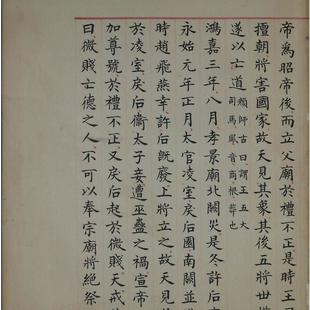 帝爲昭帝後而立父廟於禮不正是時王
擅朝將害國家故天見其象其後五將世
遂以亡道顏師古曰謂王五大
司馬鳳音商根莽也
鴻嘉三年八月孝景廟北闕災是冬許后
永始元年正月太官凌室戾后園南闕並
時趙飛燕幸許后既廢上將立之故天見
於凌室戾后衞太子妾遭巫蠱之禍宣帝
加尊號於禮不正又戾后起於微賤天戒
曰微賤亡德之人不可以奉宗廟將絶祭